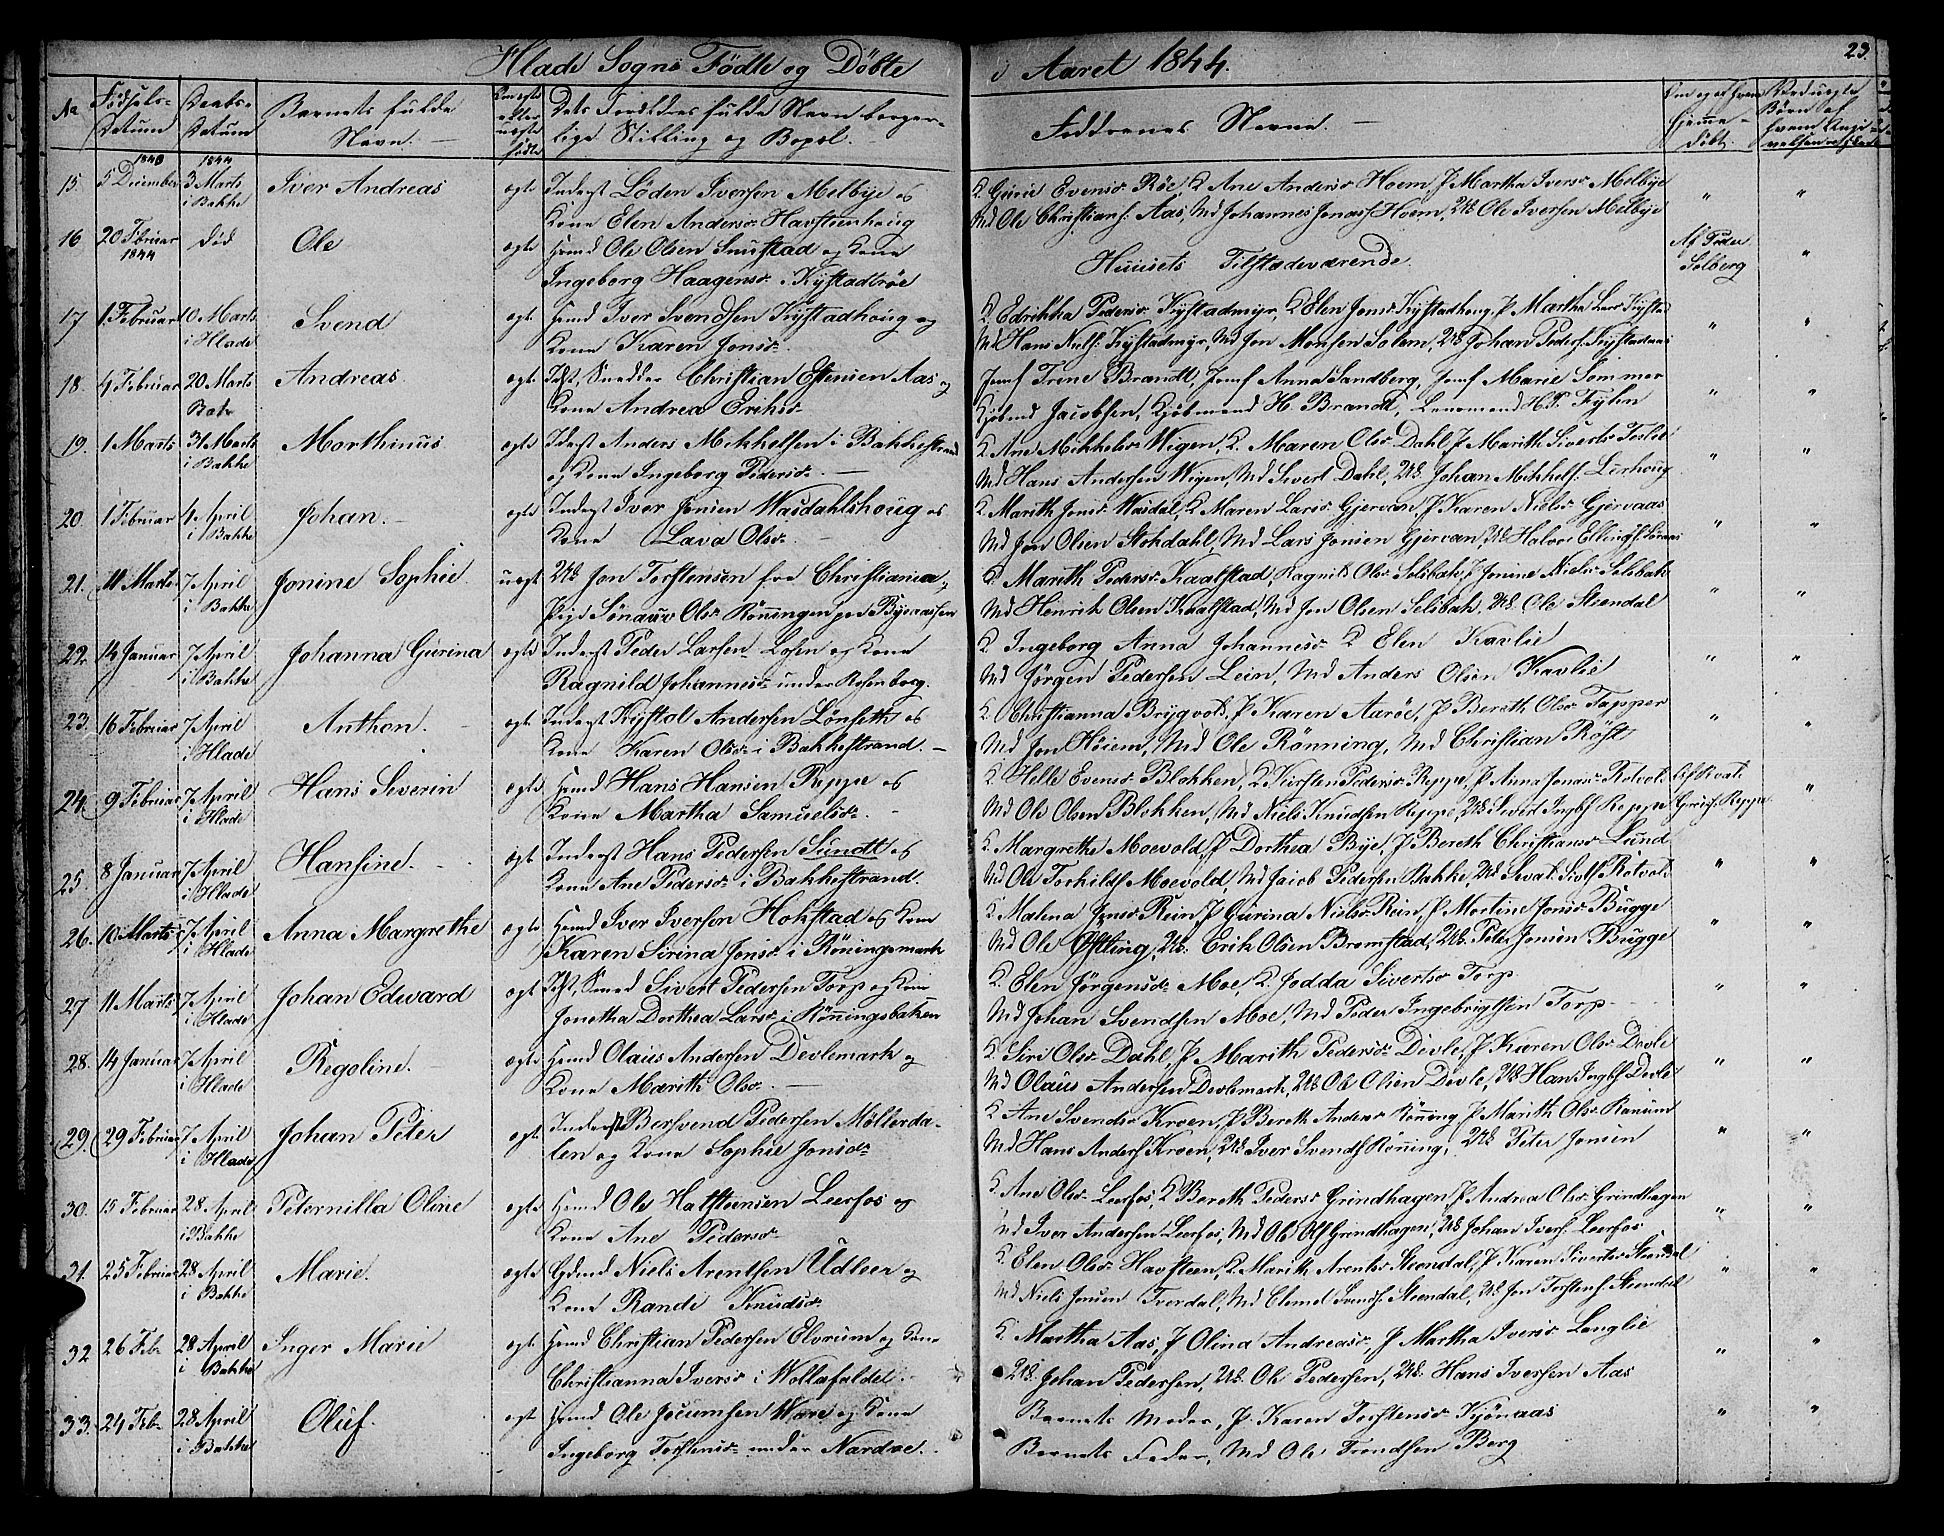 Hlade Sogns Födte og Döbte
i Aaret 1844.
23.
No
Födsels-Datum
Daabs-Datum
Barnets fulde Navn.
Om ægte eller uægte födte
Dets Forældres fulde Navn borgerlige Stilling og Bopæl.
Faddrenes Navne.
Om og af hvem hjemmedöbt.
15. 5 December 1843 3 Marts 1844 i Bakke Iver Andreas ægte Inderst Löden Iversen Melbye og
Kone Elen Andersd. Havsteenhoug
K Gurie Evensd. Röe, K Ane Andersd. Hoem, P Martha Iversd. Melbye
Md Ole Christians. Aas, Md Johannes Jonass. Hoem, Uk Ole Iversen Melbye
16 20 Februar 1844 död Ole ægte Hmd Ole Olsen Snustad og Kone
Ingeborg Haagensd. i Kystadtröe
Huusets Tilstædeværende.
Af Peder Solberg
17 1 Februar 10 Marts i Hlade Svend ægte Hmd Iver Svendsen Kystadhoug og
Kone Karen Jonsd.
K. Edrikka Pedersd. Kystadmyr, K Elen Jonsd. Kystadhoug, P Martha Larsd. Kysta
Md Hans Niels. Kystadmyr, Md Jon Monsen Solem, Uk Johan Peders. Kystadaas
18. 4 Februar 20 Marts Andreas ægte Idst, Snedker Christian Estensen Aas og
Kone Andrea Eriksd.
Jomf Trine Brandt, Jomf Anna Sandberg, Jomf Marie Sommer
Kjöbmd Jacobsen, Kjöbmand H. Brandt,
19. 1 Marts 31 Marts i Bakke Morthinus ægte Inderst Anders Mikkelsen i Bakkestrand
og Kone Ingeborg Pedersd.
K Ane Mikkelsd. Wigen, K. Maren Olsd. Dahl, P Marith Sivertsd.
Md Hans Andersen Wigen, Md Sivert Dahl, Uk Johan Mikkels. Leerhoug
20. 1 Februar 4 April i Bakke Johan. ægte Inderst Iver Jonsen Wasdahlshoug og
Kone Lava Olsd.
K Marith Jonsd. Wasdal, K Maren Larsd. Gjervan, P Karen Nielsd. Gjervaas
Md Jon Olsen Stokdahl, Md Lars Jonsen Gjervan, Uk Halvor Ellings.
21. 11 Marts 7 April i Bakke Jonine Sophie. uægt Uk Jon Torstensen fra Christiania,
Pige Olsd. Rönningen paa Byeaassen
K Marith Pedersd. Kaalstad, Ragnild Olsd. Selsbak, P Jonine Nielsd. Selsbak
Md Henrik Olsen Kaalstad, Md Jon Olsen Selsbak, Uk Ole Steendal
22. 14 Januar 7 April i Bakke Johanna Gurina ægte Inderst Peder Larsen Losen og Kone
Ragnild Johannesd. under Rosenborg.
K Ingeborg Anna Johannesd. K Elen Kavlie
Md Jörgen Pedersen Lein, Md Anders Olsen Kavlie
23. 16 Februar 7 April i Hlade Anthon. ægte Inderst Kystol Andersen Lönseth og
Kone Karen Olsd. i Bakkestrand.
K Christianna Brygvold, P Karen Aaröe, P Bereth Olsd. Tapper
Md Jon Höiem, Md Ole Rönning, Md Christian Röst
24. 9 Februar 7 April i Hlade Hans Severin ægte Hmd Hans Hansen Reppe og
Kone Martha Samuelsd.
K Helle Evensd. Blokken, K Kirsten Pedersd. Reppe, P Anna Jonasd. Rotvol
Md Ole Olsen Blokken, Md Niels Knudsen Reppe, Uk Sivert Ingbs. Reppe
25. 8 Januar 7 April i Hlade Hansine. ægt Inderst Hans Pedersen Sundt og
Kone Ane Pedersd. i Bakkestrand.
K. Margrethe Moevold, P Dorthea Bye, P Bereth Christiansd. Lund
Md Ole Torkilds. Moevold, Md Jacob Pedersen Bakke, Uk Rotvold
26. 10 Marts 7 April i Hlade Anna Margrethe ægte Hmd Iver Iversen Hokstad og Kone
Karen Sirina Jonsd. i Röningsmark
K Malena Jonsd. Rein, P Gurina Nielsd. Rein, P Martine Jonsd. Bugge
Md Ole Estling, Uk. Erik Olsen Bromstad, Uk. Peter Jonsen Bugge
27 11 Marts 7 April i Hlade Johan Edward ægt Idst, Smed Sivert Pedersen Torp og Kone
Jonetha Dorthea Larsd. i Röningsbaken
K. Elen Jörgensd. Moe, K. Jodda Sivertsd. Torp
Md Johan Svendsen Moe, Md Peder Ingebrigtsen Torp.
28. 14 Januar 7 April i Hlade Regoline. ægte Hmd Olaus Andersen Devlemark og
Kone Marith Olsd.
K Siri Olsd. Dahl, P Marith Pedersd. Devle, P Karen Olsd. Devle
Md Olaus Andersen Devlemark, Uk Ole Olsen Devle, Uk Han Ingbs. Devle
29. 29 Februar 7 April i Hlade Johan Peter ægt Inderst Bersvend Pedersen Möllerda-
len og Kone Sophie Jonsd.
K Ane Svendsd. Kroen, P Bereth Andersd. Rönning, P Marith Olsd. Ranum
Md Hans Anders. Kroen, Uk Iver Svends. Rönning, Uk Peter Jonsen
30. 15 Februar 28 April i Bakke Peternilla Oline ægte Hmd Ole Halsteensen Leerfos og
Kone Ane Pedersd.
K. Ane Olsd. Leerfos, K Bereth Pedersd. Grindhagen, P Andrea Olsd. Grindhagen
Md Iver Andersen Leerfos, Md Ole Ols. Grindhagen, Uk Johan Ivers. Leerfos
31. 25 Februar 28 April i Bakke Marie. ægte Gdmd Niels Arentsen Udleer og
Kone Randi Knudsd.
K. Elen Olsd. Havsteen, K. Marith Arentsd. Steendal, P Karen Sivertsd. Steendal
Md Niels Jonsen Tverdal, Md Clemet Svends. Steendal, Uk Jon Torstens. Steendal
32 26 Feb. 28 April i Bakke Inger Marie ægt Hmd Christian Pedersen Elvrum og Kone
Christianna Iversd. i Wollafaldet.
K. Martha Aas, P Olina Andreasd., P Martha Iversd. Langlie
Uk Johan Pedersen, Uk. Ole Pedersen, Uk. Hans Iversen Aas
33. 24 Feb. 28 April i Bakke Oluf. ægt Hmd Ole Jocumsen Ware og Kone
Ingeborg Torstensd. under Nardoe.
Barnets Moder, P. Karen Torstensd. Kyönaas
Barnets Fader, Md Ole Trondsen Berg